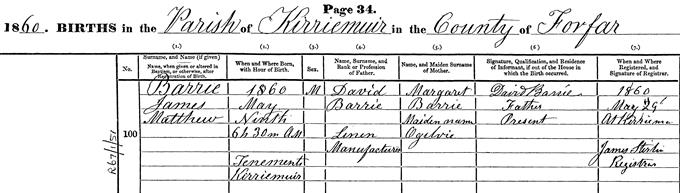 Page 34.
1860. BIRTHS in the Parish of Kirriemuir in the County of Forfar
(1.) (2.) (3.) (4.) (5.) (6.) (7.)
No.
Surname, and Name (if given)
Name, when given or altered in
Baptism, or otherwise, after
Registration of Birth.
When and Where Born,
with Hour of Birth.
Sex.
Name, Surname, and
Rank or Profession
of Father.
Name, and Maiden Surname
of Mother.
Signature, Qualification, and Residence
of Informant, if out of the House in
which the Birth occurred.
When and Where
Registered, and
Signature of Registrar.
Barrie 1860 M David Margaret David Barrie 1860
James May Barrie Barrie Father May 29
Matthew Ninth Maiden name Present At Kirriemu
100 6h 30m AM Linen Ogilvie
Manufacturer James Stirlin
Tenements Registrar
Kirriemuir
R67/1/51